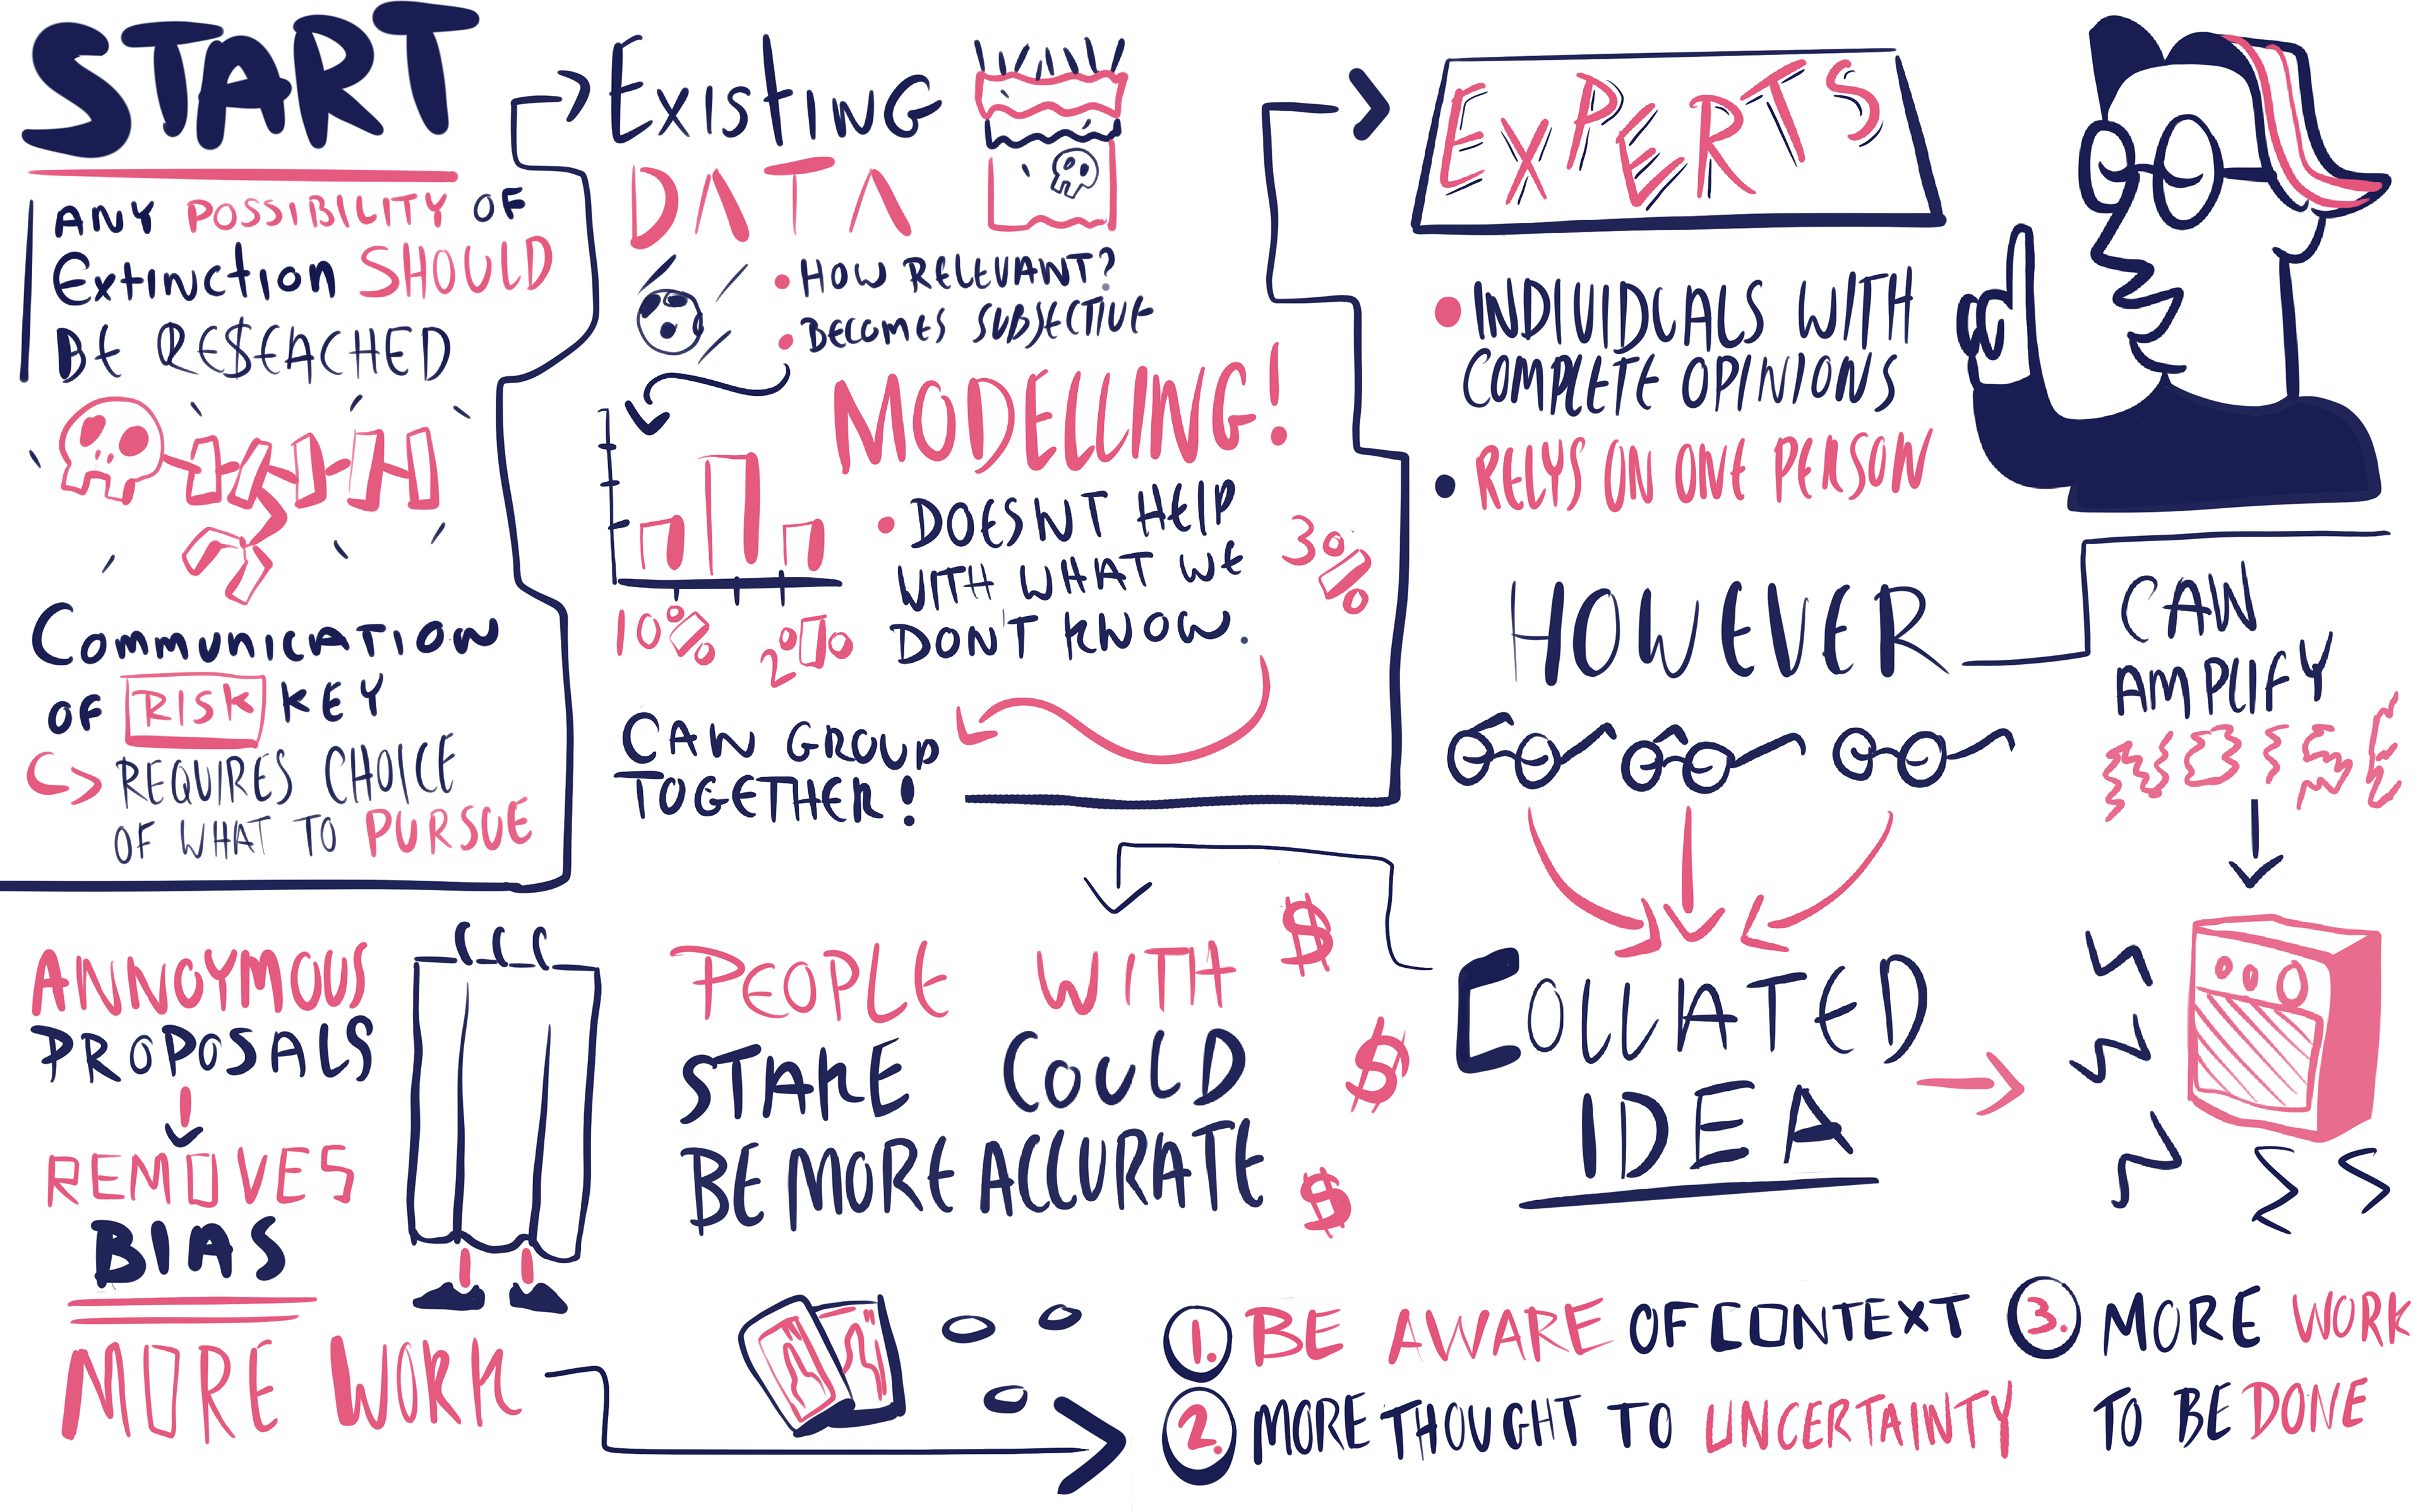 START
ANY POSSIBILITY OF
EXTINCTION SHOULD
BE RESEACHED
COMMUNICATION
OF RISK KEY
REQUIRES CHOICE
OF WHAT TO PURSUE
EXISTING
DATA
HOW RELEVANT?
BECOMES SUBJECTIVE
MODELLING!
DOESNT HELP
WITH WHAT WE
DON'T KNOW.
10%
20%
3%
CAN GROUP
TOGETHER!
EXPERTS
INDIVIDUALS WITH
COMPLETE OPINIONS
RELYS ON ONE PERSON
HOWEVER
CAN
AMPLIFY
COLLATED
IDEA
PEOPLE WITH
STAKE COULD
BE MORE ACCURATE
$
$
$
ANNOYMOUS
PROPOSALS
REMOVES
BIAS
MORE WORK
1. BE AWARE OF CONTEXT
2. MORE THOUGHT TO UNCERTAINTY
3. MORE WORK
TO BE DONE